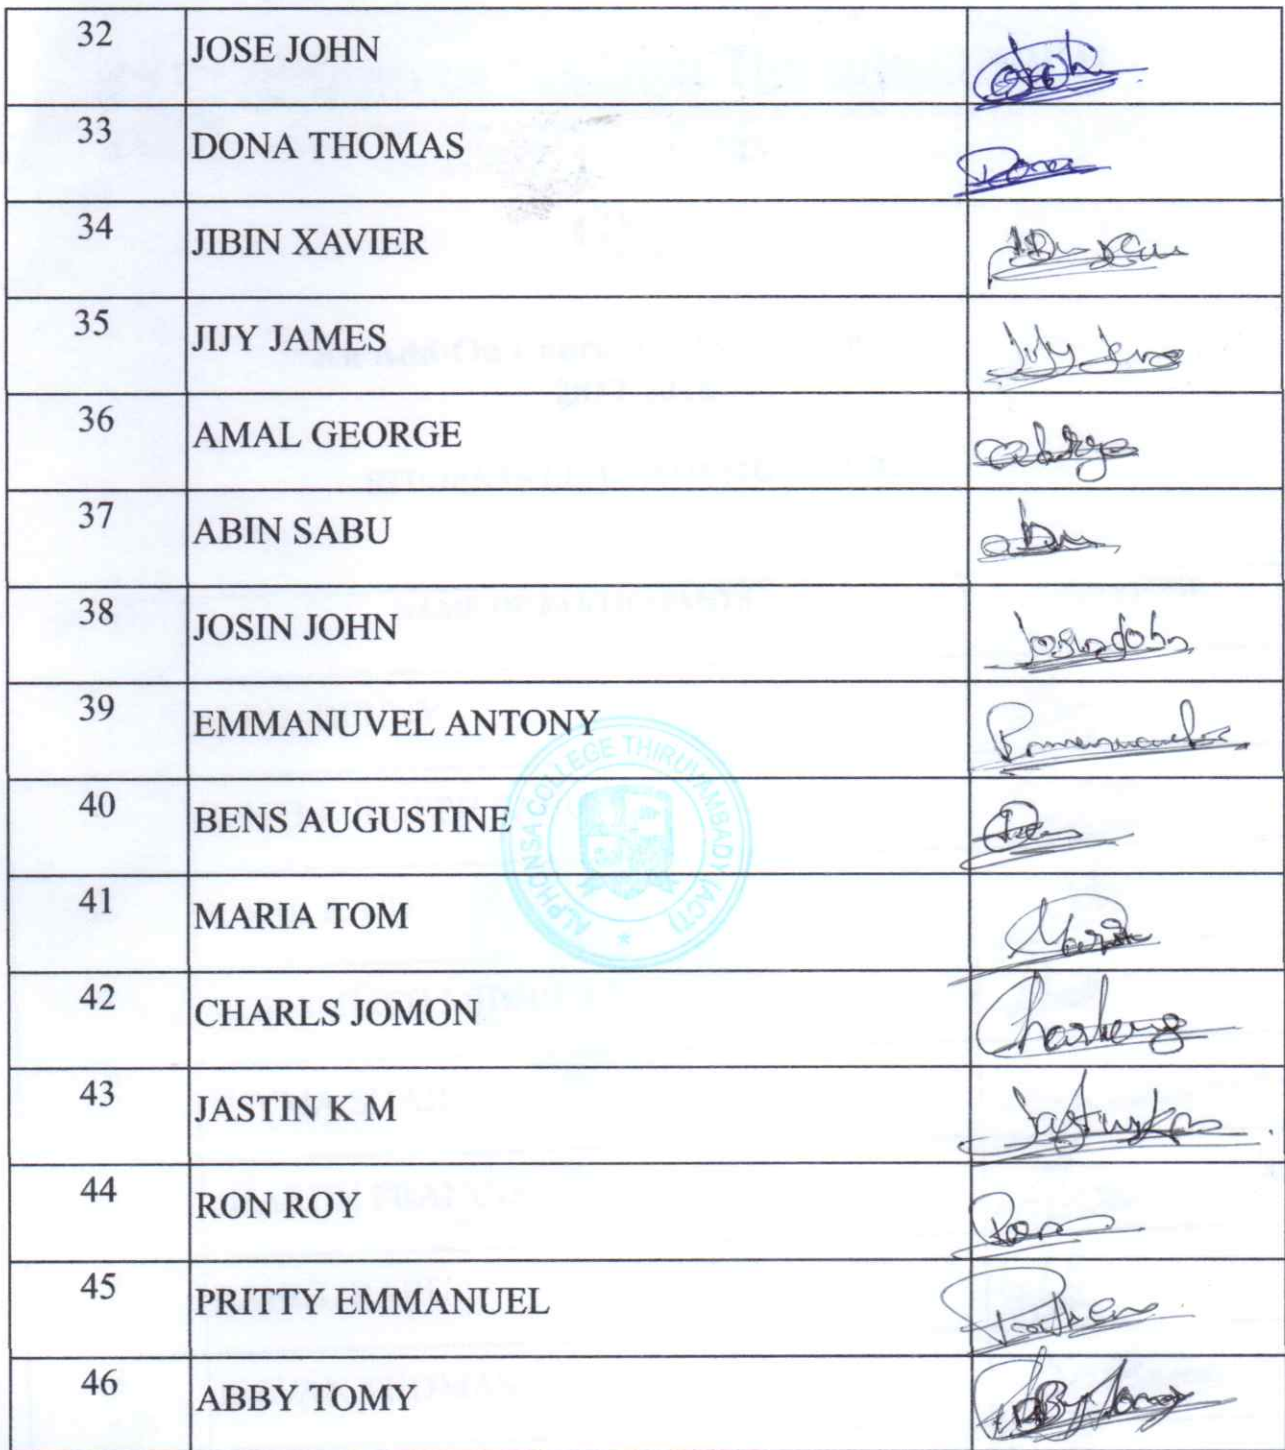 32 JOSE JOHN
33 DONA THOMAS Dona
34 JIBIN XAVIER
35 JIJY JAMES
36 AMAL GEORGE
37 ABIN SABU abin
38 JOSIN JOHN Josin John
39 EMMANUVEL ANTONY
40 BENS AUGUSTINE
41 MARIA TOM Maria
42 CHARLS JOMON
43 JASTIN K M Jastin K M
44 RON ROY Ron
45 PRITTY EMMANUEL
46 ABBY TOMY
ALPHONSA COLLEGE THIRUVAMBADY (ACT)